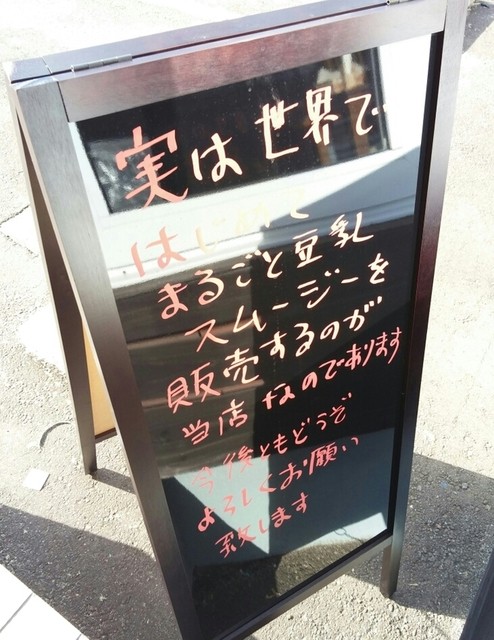 実は世界で
はじめて
まるごと豆乳
スムージーを
販売するのが
当店なのであります
今後ともどうぞ
よろしくお願い
致します